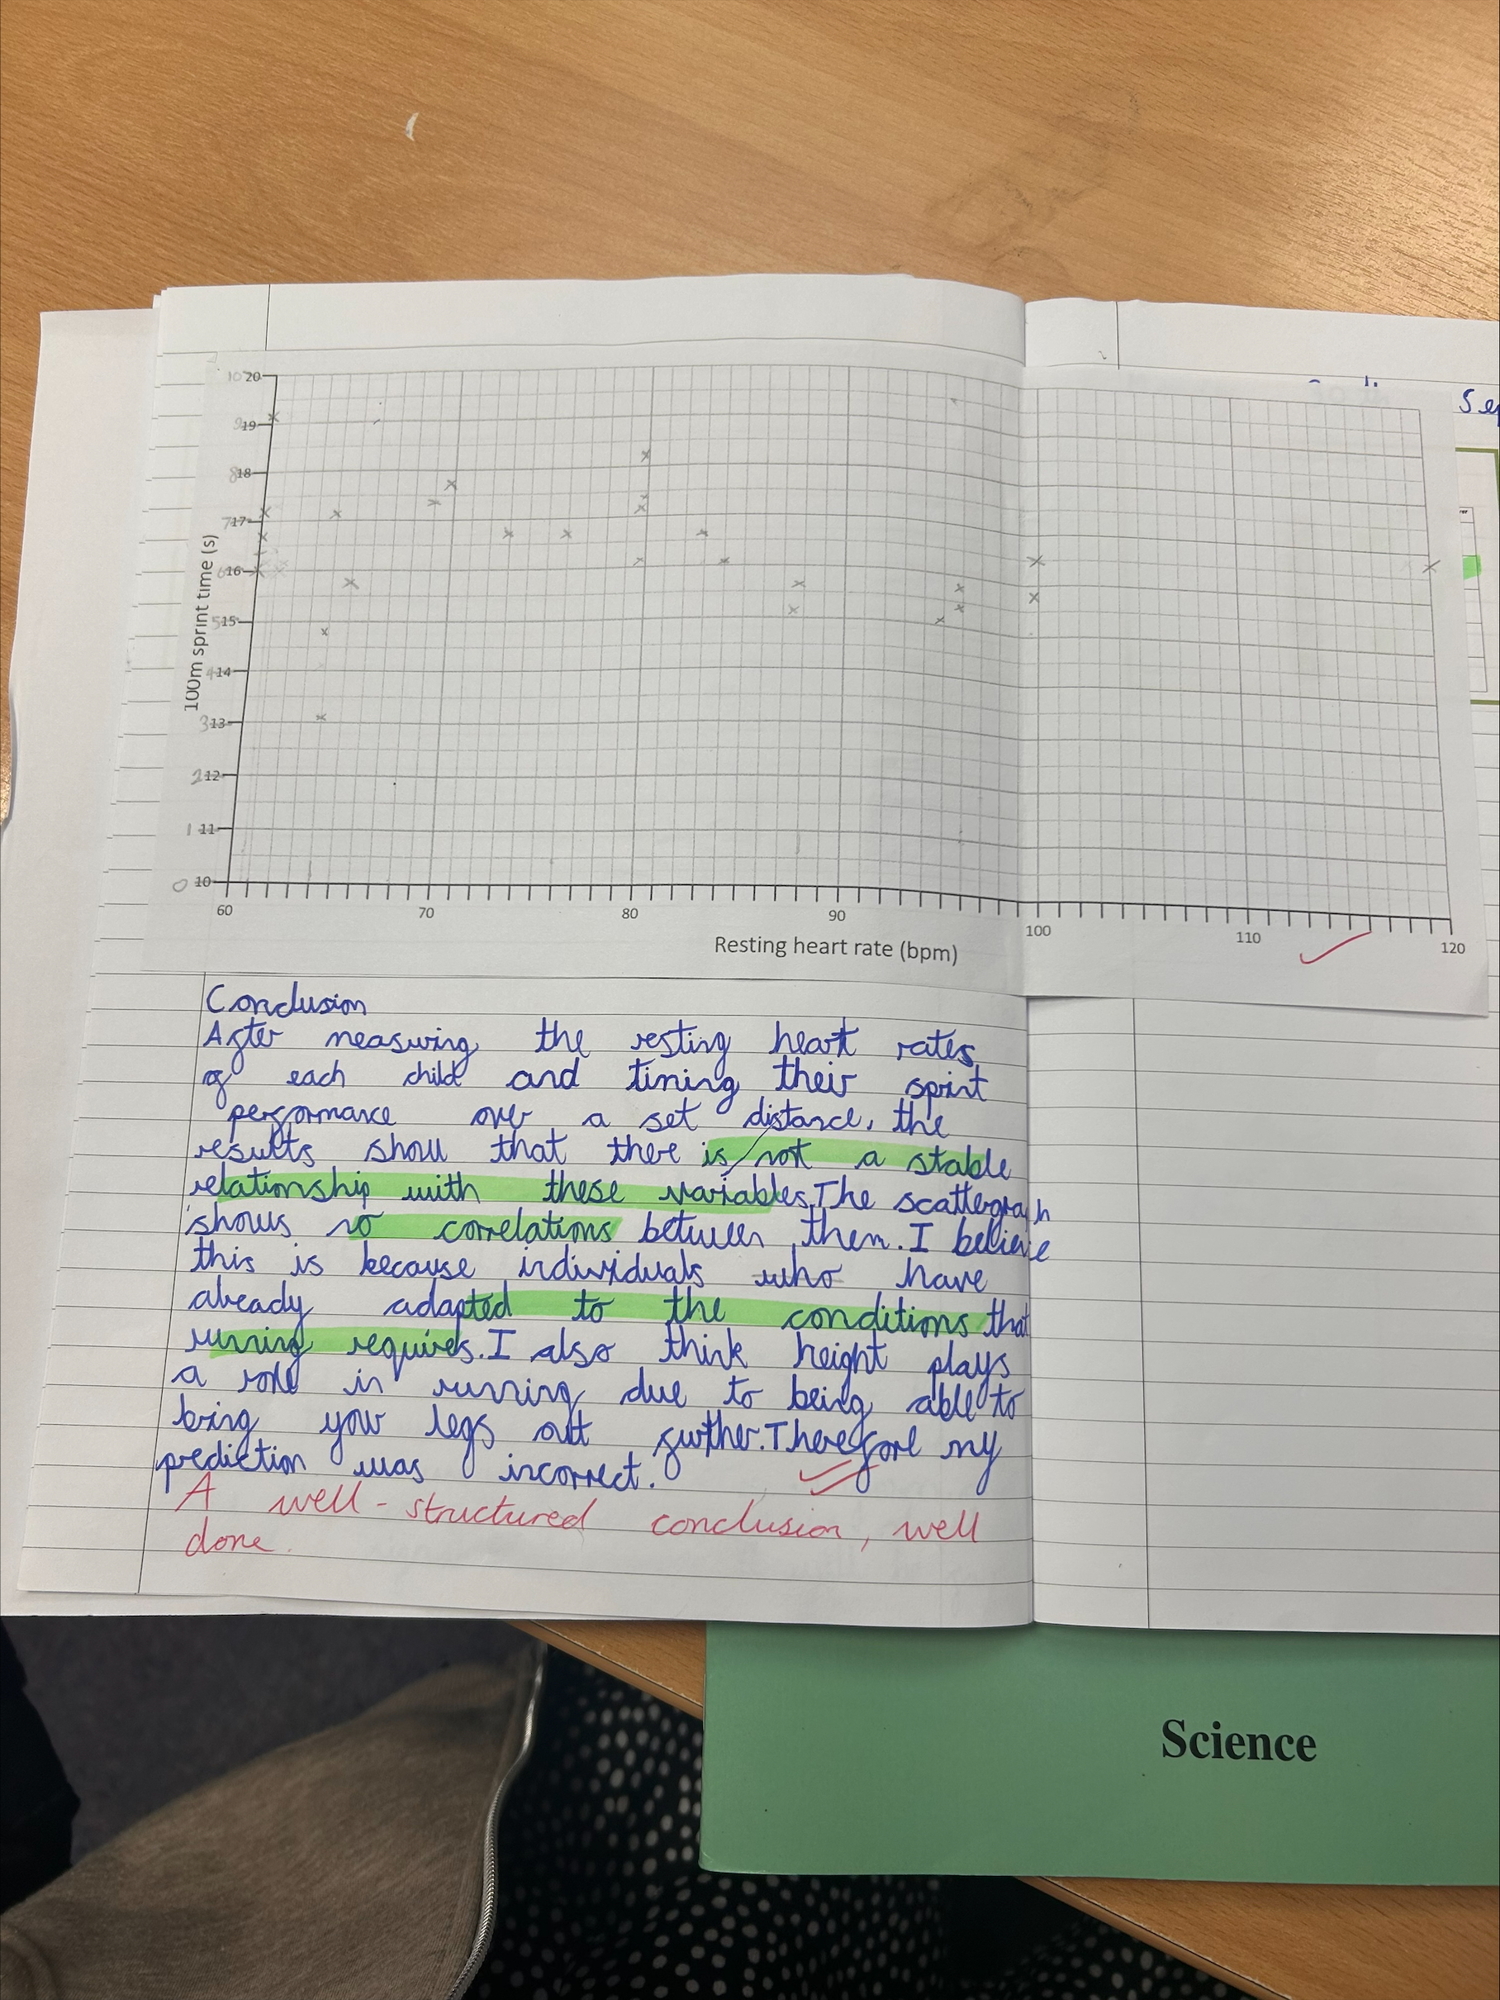 20
19
18
17
16
15
14
13
12
11
10
100m sprint time (s)
60 70 80 90 100 110 120
Resting heart rate (bpm)
Conclusion
After measuring the resting heart rates
of each child and timing their sprint
performance over a set distance, the
results show that there is not a stable
relationship with these variables. The scattergraph
shows no correlations between them. I believe
this is because individuals who have
already adapted to the conditions that
running requires. I also think height plays
a role in running due to being able to
bring your legs out further. Therefore my
prediction was incorrect.
A well-structured conclusion, well
done.
Science